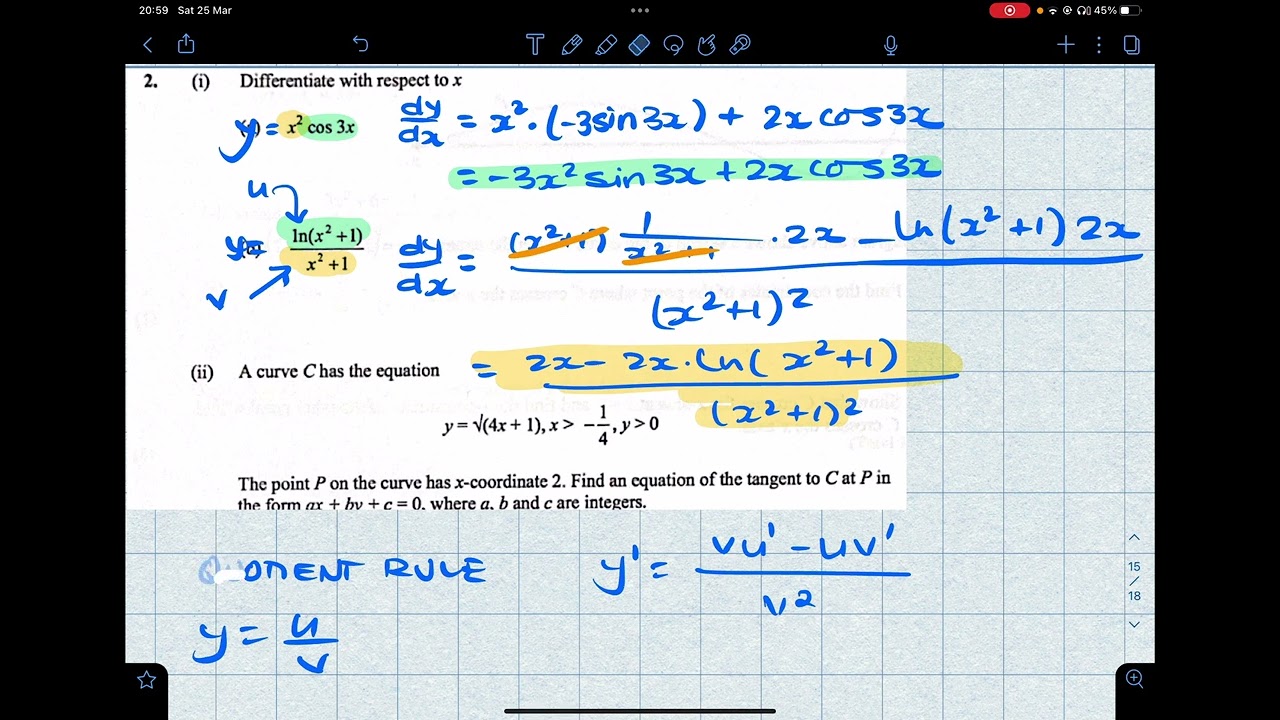 20:59 Sat 25 Mar
45%
2. (i) Differentiate with respect to x
y = x² cos 3x
dy/dx = x² · (-3sin3x) + 2x cos3x
= -3x² sin 3x + 2x cos3x
u
y = ln(x² +1) / x² +1
v
dy/dx = (x²+1) 1/x²+1 · 2x - ln(x²+1) 2x / (x²+1)²
= 2x - 2x · ln(x²+1) / (x²+1)²
(ii) A curve C has the equation
y = √(4x + 1), x > -1/4, y > 0
The point P on the curve has x-coordinate 2. Find an equation of the tangent to C at P in
the form ax + by + c = 0, where a, b and c are integers.
RULE
y' = vu' - uv' / v²
y = u/v
15
/
18